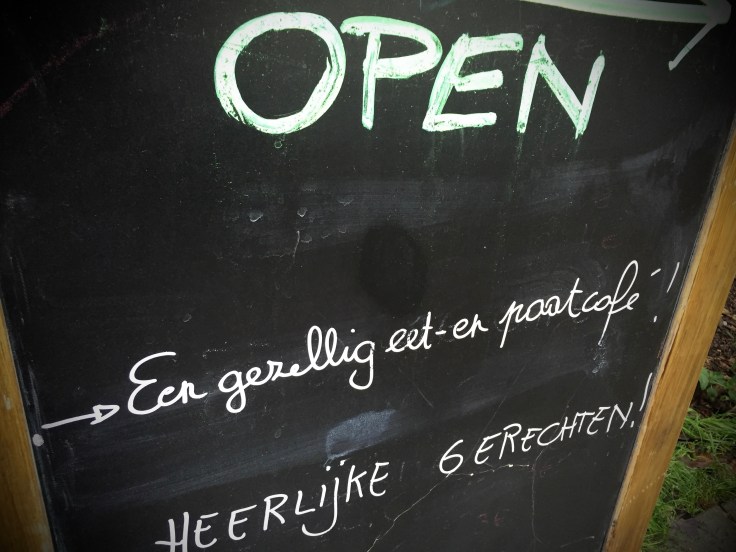 OPEN
Een gezellig eet-en praatcafé!
HEERLIJKE GERECHTEN!